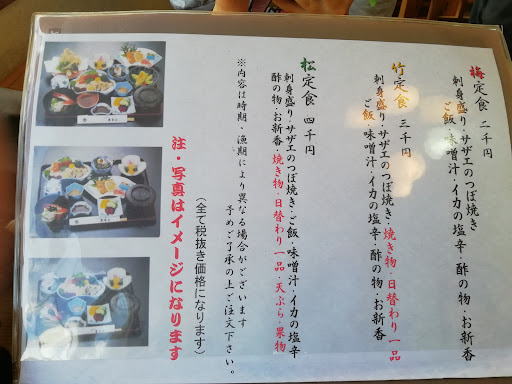 梅定食 二千円
刺身盛り・サザエのつぼ焼き
ご飯・味噌汁・イカの塩辛・酢の物・お新香
竹定食 三千円
刺身盛り・サザエのつぼ焼き・焼き物・日替わり一品
ご飯・味噌汁・イカの塩辛・酢の物・お新香
松定食 四千円
刺身盛り・サザエのつぼ焼き・ご飯・味噌汁・イカの塩辛
酢の物・お新香・焼き物・日替わり一品・天ぷら・果物
※内容は時期・漁期により異なる場合がございます
予めご了承の上ご注文下さい。
(全て税抜き価格になります)
注・写真はイメージになります